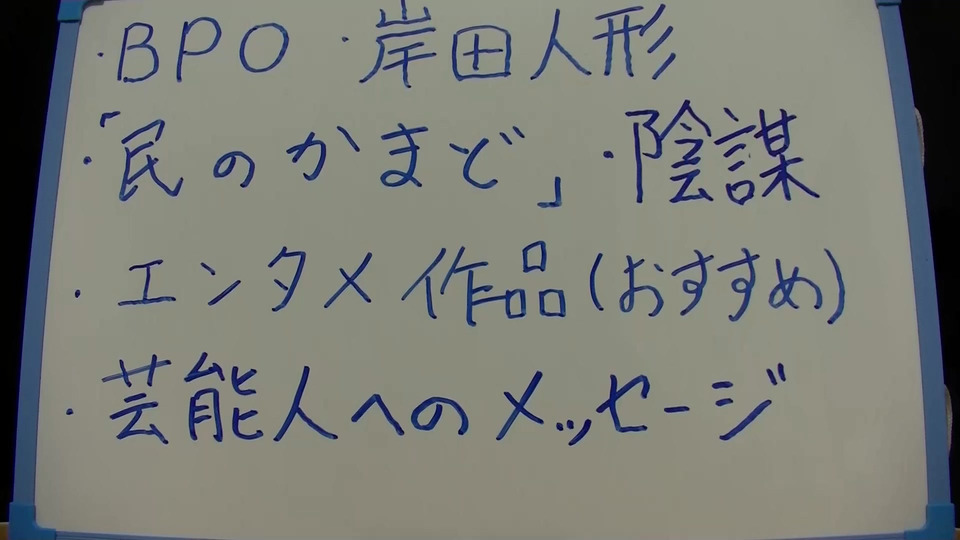 ・BPO ・岸田人形
・「民のかまど」・陰謀
・エンタメ作品(おすすめ)
・芸能人へのメッセージ